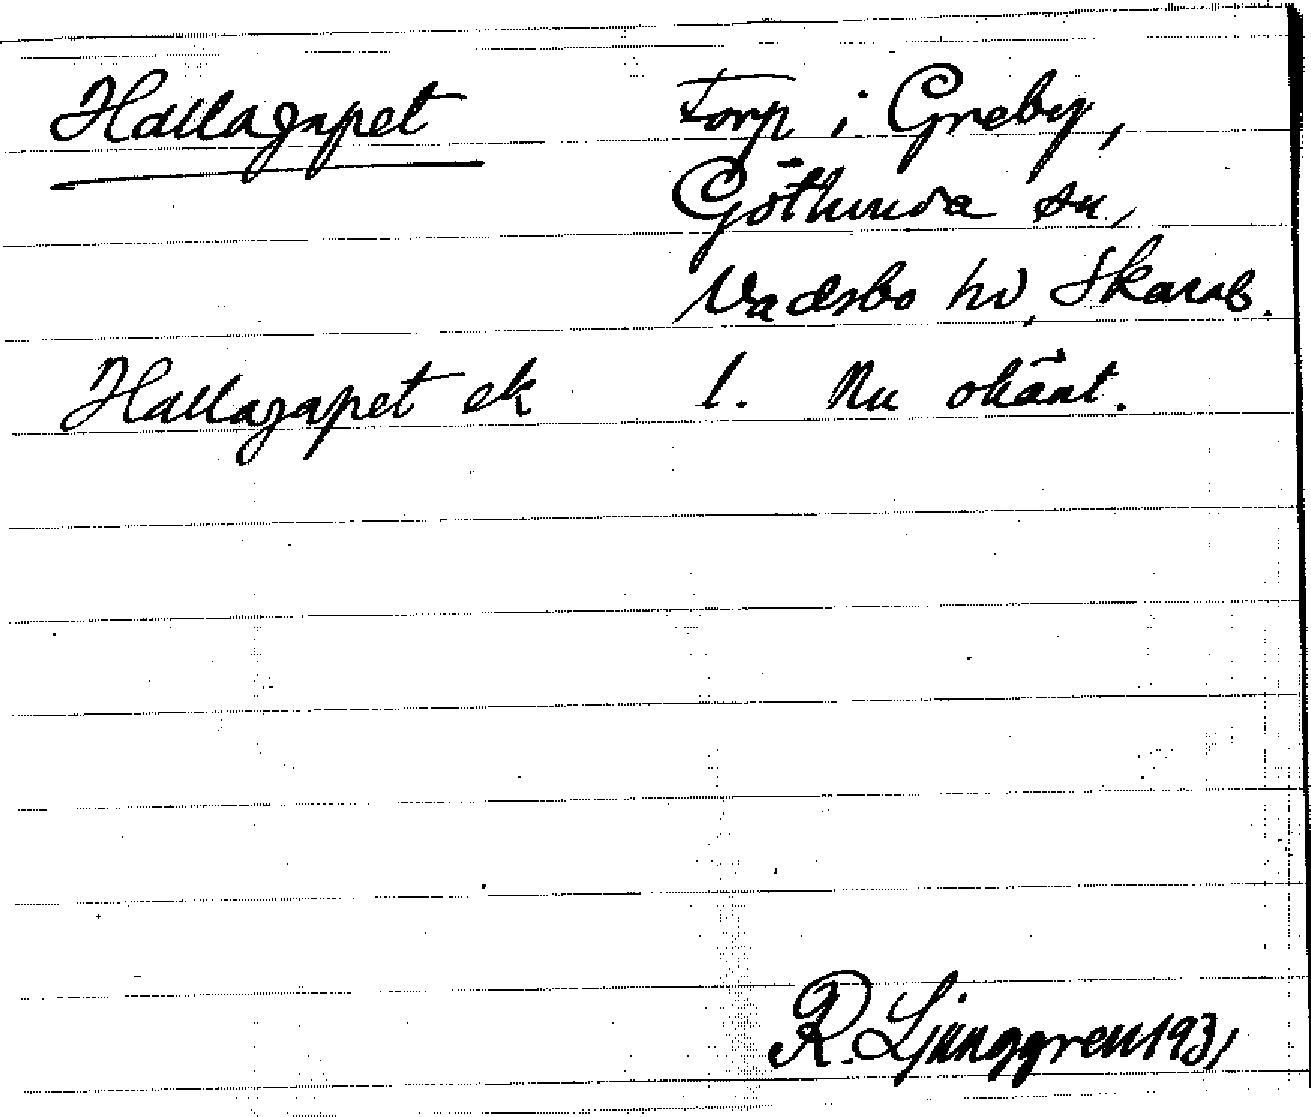 Hallagapet Torp i Greby,
Götlunda sn,
Vadsbo hd, Skarab.
Hallagapet ek 1. Nu okänt.
R. Ljunggren 1931